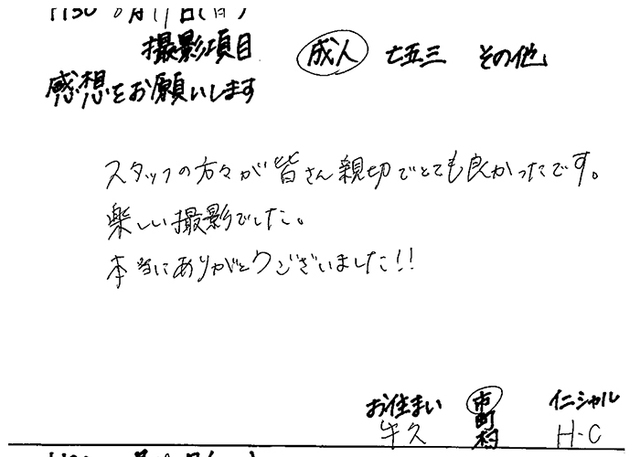 撮影項目 成人 七五三 その他
感想をお願いします
スタッフの方々が皆さん親切でとても良かったです。
楽しい撮影でした。
本当にありがとうございました!!
お住まい 市 イニシャル
牛久 町 H・C
村